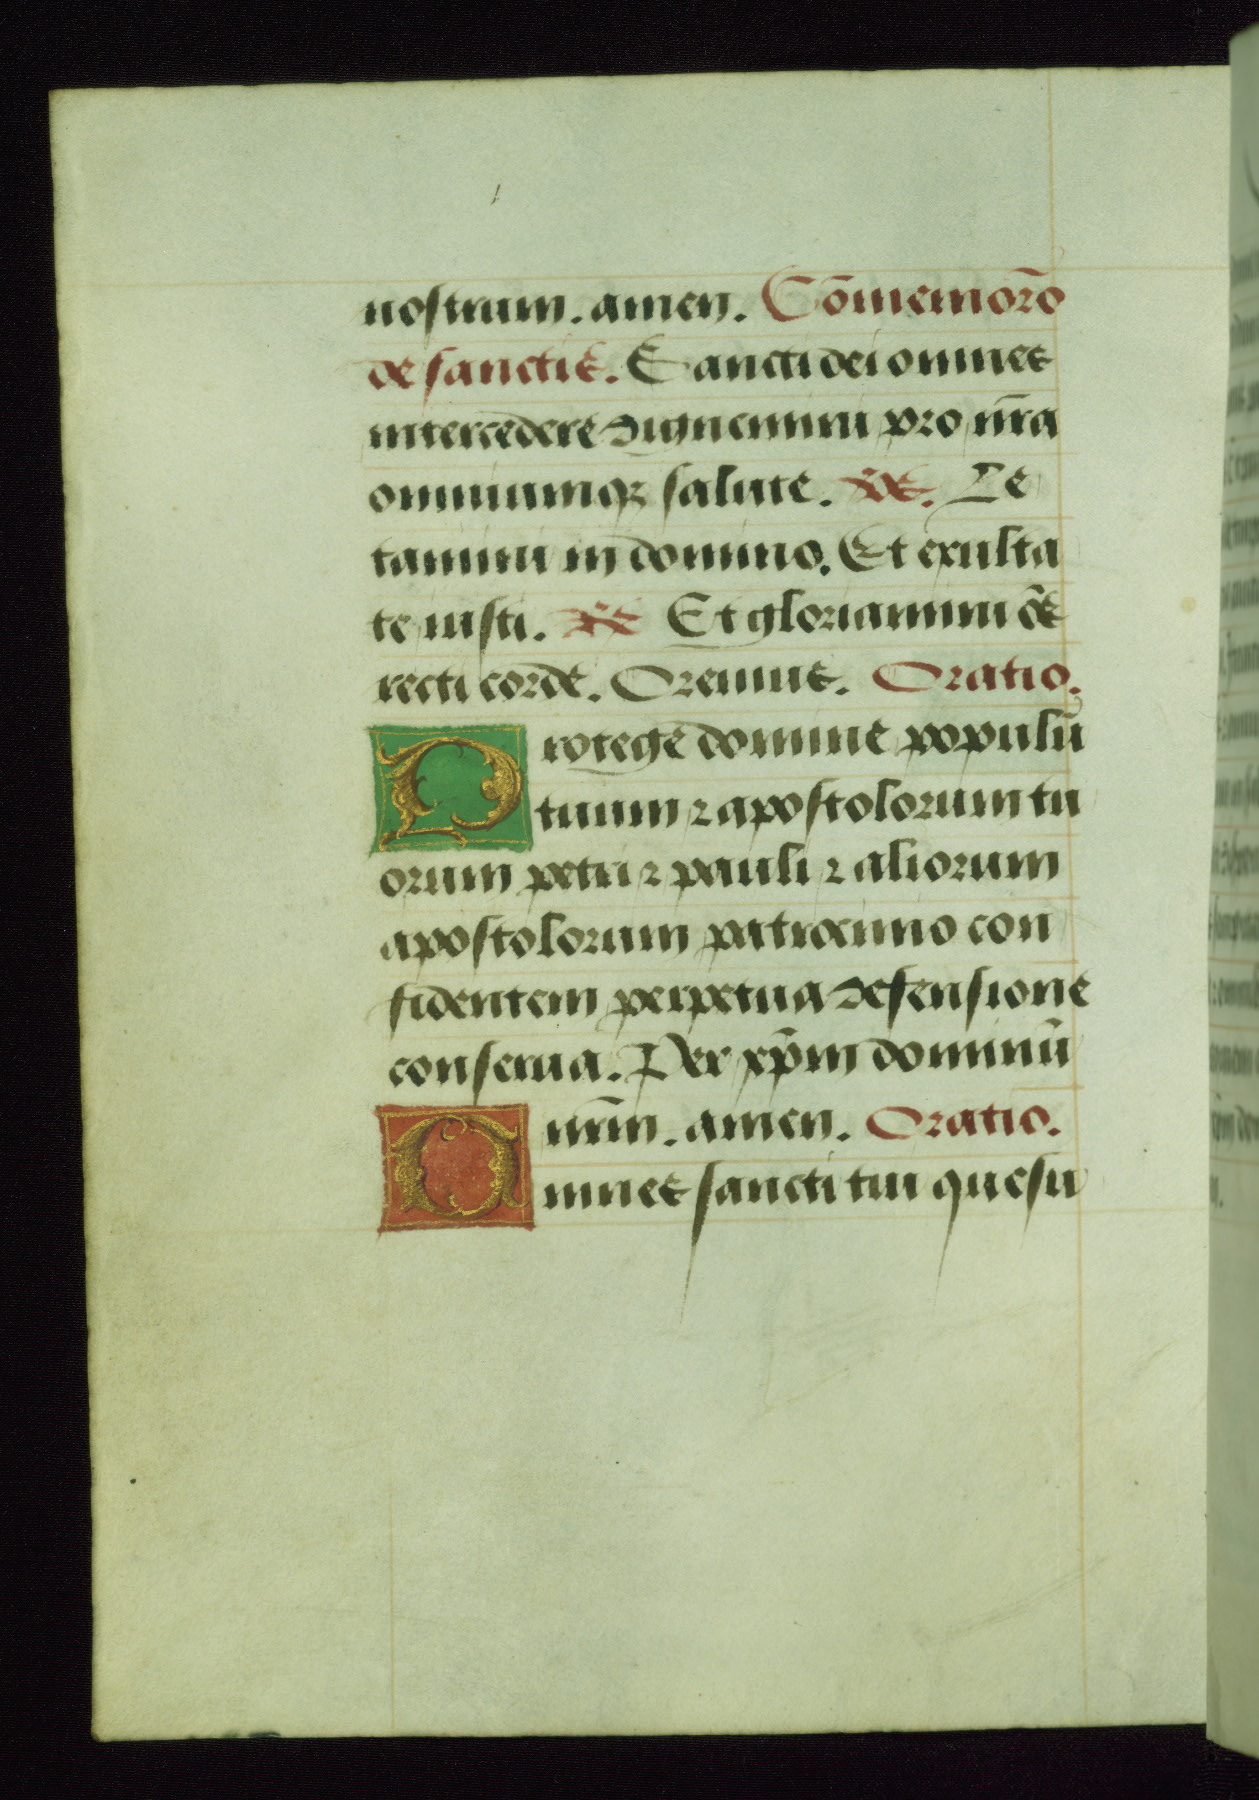 nostrum. amen. Cōmemorō
de sanctis. Sancti dei omnes
intercedere dignemini pro nr̄a
omniumqꝫ salute. v̄s. Le
tamini in domino. Et exulta
te iusti. R̄ Et gloriamini oēs
recti corde. Oremus. Oratio.
Protege domine populū
tuum ⁊ apostolorum tu
orum petri ⁊ pauli ⁊ aliorum
apostolorum patrocinio con
fidentem perpetua defensione
conserua. Per xp̄m dominū
nr̄m. amen. Oratio.
Omnes sancti tui quesu